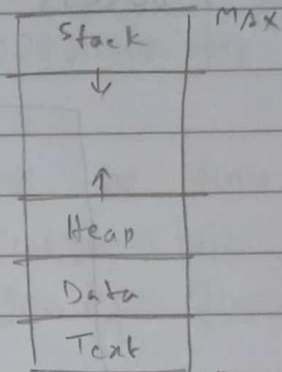 Stack MAX
↓
↑
Heap
Data
Text